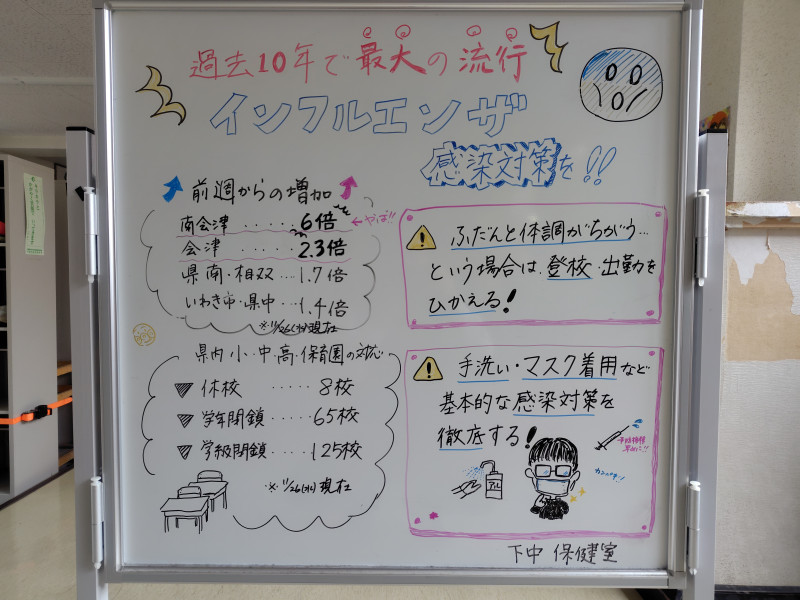 過去10年で最大の流行
インフルエンザ
感染対策を!!
前週からの増加
南会津 ..... 6倍 ←やば!!
会津 ..... 2.3倍
県南・相双 ... 1.7倍
いわき市・県中 ... 1.4倍
※11/26(水)現在
県内 小・中・高・保育園の対応
▼ 休校 ..... 8校
▼ 学年閉鎖 ..... 65校
▼ 学級閉鎖 .... 125校
※11/26(水)現在
ふだんと体調がちがう...
という場合は、登校・出勤を
ひかえる!
手洗い・マスク着用など
基本的な感染対策を
徹底する!
予防接種
早めに!!
下中 保健室